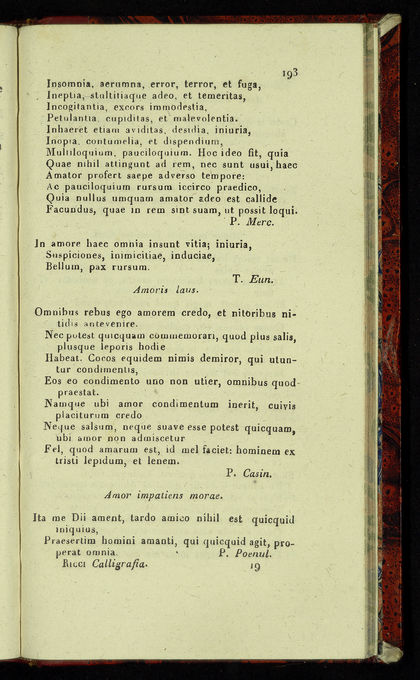 193
Insomnia, aerumna, error, terror, et fuga,
Ineptia, stultitiaque adeo, et temeritas,
Incogitantia, excors immodestia,
Petulantia, cupiditas, et malevolentia.
Inhaeret etiam aviditas, desidia, iniuria,
Inopia, contumelia, et dispendium,
Multiloquium, pauciloquium. Hoc ideo fit, quia
Quae nihil attingunt ad rem, nec sunt usui, haec
Amator profert saepe adverso tempore:
Ac pauciloquium rursum iccirco praedico,
Quia nullus umquam amator adeo est callide
Facundus, quae in rem sint suam, ut possit loqui.
P. Merc.
In amore haec omnia insunt vitia; iniuria,
Suspiciones, inimicitiae, induciae,
Bellum, pax rursum.
T. Eun.
Amoris laus.
Omnibus rebus ego amorem credo, et nitoribus ni-
tidis antevenire.
Nec potest quicquam commemorari, quod plus salis,
plusque leporis hodie
Habeat. Cocos equidem nimis demiror, qui utun-
tur condimentis,
Eos eo condimento uno non utier, omnibus quod
praestat.
Namque ubi amor condimentum inerit, cuivis
placiturum credo
Neque salsum, neque suave esse potest quicquam,
ubi amor non admiscetur
Fel, quod amarum est, id mel faciet: hominem ex
tristi lepidum, et lenem.
P. Casin.
Amor impatiens morae.
Ita me Dii ament, tardo amico nihil est quicquid
iniquius,
Praesertim homini amanti, qui quicquid agit, pro-
perat omnia. P. Poenul.
Ricci Calligrafia. 19